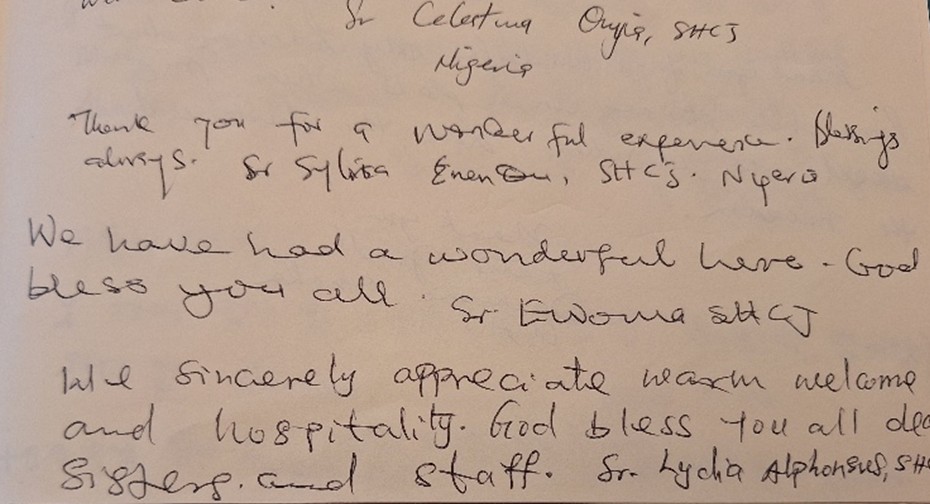 Sr Celestina Onyia, SHCJ
Nigeria
Thank you for a wonderful experience. Blessings
always. Sr Sylvia SHCJ. Nigeria
We have had a wonderful here. God
bless you all. Sr. Ewoma SHCJ
We sincerely appreciate warm welcome
and hospitality. God bless you all
Sisters. and staff. Sr. Lydia Alphonsus,